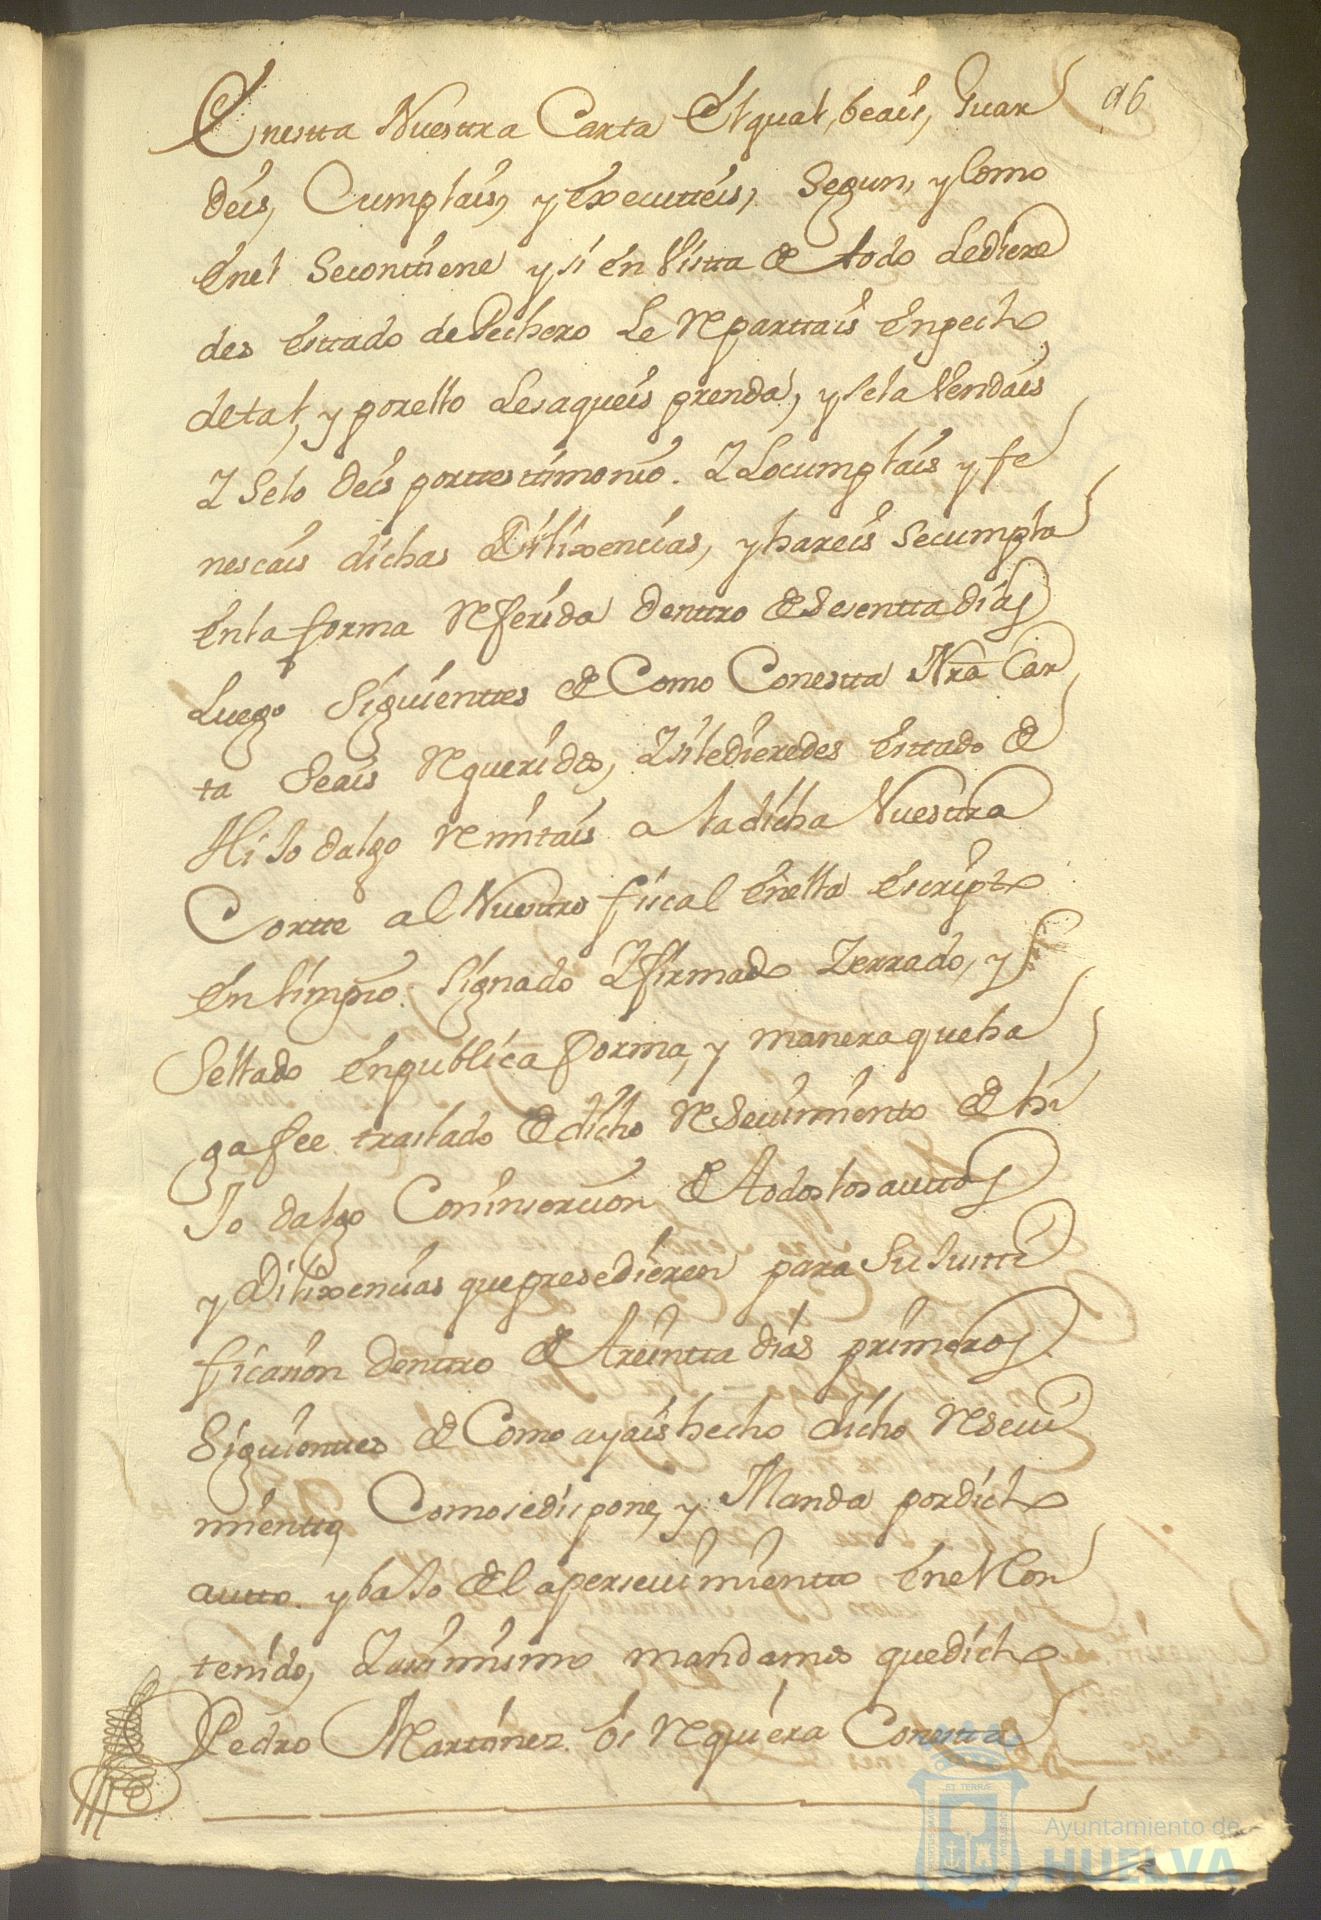 96
Enestta Nuestra Carta El qual, beais, Guar
deis, Cumplais, y executteis, Segun, y Como
enel Secontiene y si en Vistta de todo lediere
des esttado dePechero le Reparttais enpecho
detal, y porello lesaqueis prenda, y sela Vendais
Y selo deis porttesttimonio. Y locumplais y fe
nescais dichas dilixencias, y hareis secumpla
enla forma Referida dentro de sesentta dias
Luego Siguienttes de Como Conestta Nra Car
ta Seais Requerido, Y siledieredes esttado de
HiJo dalgo Remitais a ladicha Nuesttra
Cortte al Nuesttro fiscal enella escripto
en limpio. Signado Y firmado Zerrado, y
Sellado enpublica forma, y manera queha
ga fee traslado de dicho Resevimiento de hi
Jo dalgo Coninsercion de todoslos auttos
y Dilixencias quepresedieren para suJusti
ficacion dentro de treintta dias primeros
Siguienttes de Como ayais hecho dicho Resevi
mientto, Comosedispone, y Manda pordicho
autto. y baJo del apersevimientto enel Con
tenido, Y asimismo mandamos quedicho
Pedro Martinez os Requiera Conestta
ET TERRÆ
Ayuntamiento de
HUELVA